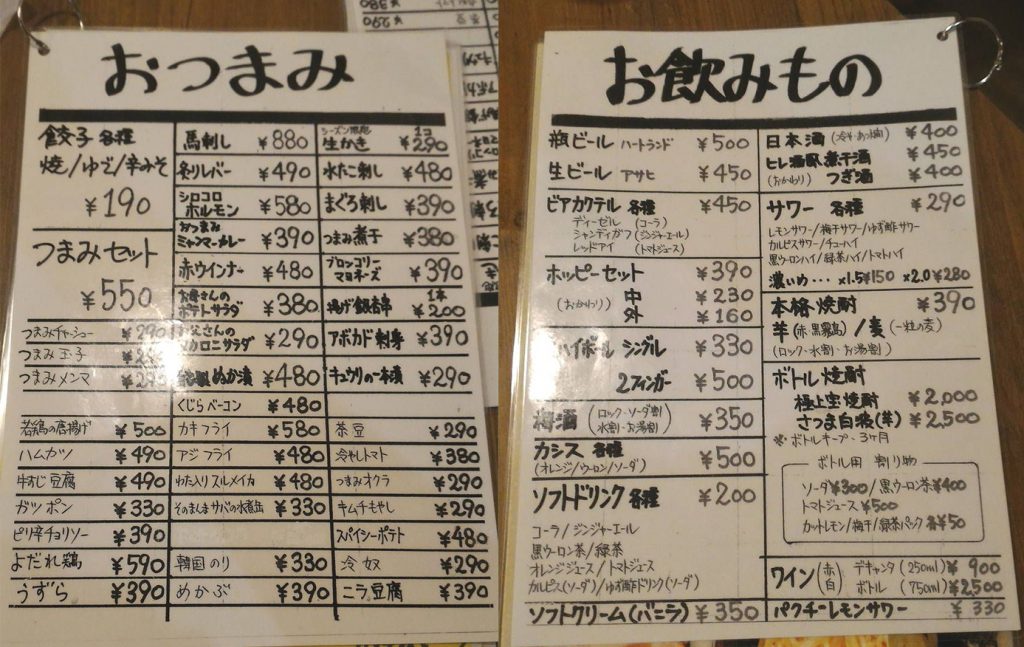 おつまみ
餃子 各種
焼/ゆで/辛みそ
¥190
つまみセット
¥550
つまみチャーシュー ¥290
つまみ玉子
つまみメンマ
若鶏の唐揚げ ¥500
ハムカツ ¥490
牛すじ豆腐 ¥490
ガツポン ¥330
ピリ辛チョリソー ¥390
よだれ鶏 ¥590
うずら ¥390
馬刺し ¥880
炙りレバー ¥490
シロコロ
ホルモン ¥580
おつまみ
ミャンマーカレー ¥390
赤ウインナー ¥480
お母さんの
ポテトサラダ ¥380
お父さんの
マカロニサラダ ¥290
ぬか漬 ¥480
くじらベーコン ¥480
カキフライ ¥580
アジフライ ¥480
わた入りスルメイカ ¥480
そのまんまサバの水煮缶 ¥330
韓国のり ¥330
めかぶ ¥390
シーズン限定
生かき 1コ ¥290
水たこ刺し ¥480
まぐろ刺し ¥390
つまみ煮干 ¥380
ブロッコリー
マヨネーズ ¥390
揚げ銀杏串 1本 ¥200
アボカド刺身 ¥390
キュウリの一本漬 ¥290
茶豆 ¥290
冷やしトマト ¥380
つまみオクラ ¥290
キムチもやし ¥290
スパイシーポテト ¥480
冷奴 ¥290
ニラ豆腐 ¥390
お飲みもの
瓶ビール ハートランド ¥500
生ビール アサヒ ¥450
ビアカクテル 各種 ¥450
ディーゼル (コーラ)
シャンディガフ (ジンジャーエール)
レッドアイ (トマトジュース)
ホッピーセット ¥390
(おかわり) 中 ¥230
外 ¥160
ハイボール シングル ¥330
2フィンガー ¥500
梅酒 (ロック・ソーダ割 水割・お湯割) ¥350
カシス 各種 ¥500
(オレンジ/ウーロン/ソーダ)
ソフトドリンク 各種 ¥200
コーラ/ジンジャーエール
黒ウーロン茶/緑茶
オレンジジュース/トマトジュース
カルピス(ソーダ)/ゆず酢ドリンク(ソーダ)
ソフトクリーム(バニラ) ¥350
日本酒 (冷や・あつ燗) ¥400
ヒレ酒風煮干酒 ¥450
(おかわり) つぎ酒 ¥400
サワー 各種 ¥290
レモンサワー/梅干サワー/ゆず酢サワー
カルピスサワー/チューハイ
黒ウーロンハイ/緑茶ハイ/トマトハイ
濃いめ… ×1.5 ¥150 ×2.0 ¥280
本格焼酎 ¥390
芋(赤・黒霧島)/麦(一粒の麦)
(ロック・水割・お湯割)
ボトル焼酎
極上宝焼酎 ¥2,000
さつま白波(芋) ¥2,500
※ボトルキープ・3ヶ月
ボトル用 割り物
ソーダ¥300/黒ウーロン茶¥400
トマトジュース ¥500
カットレモン/梅干/緑茶パック 各¥50
ワイン(赤・白) デキャンタ (250ml) ¥900
ボトル (750ml) ¥2,500
パクチーレモンサワー ¥330